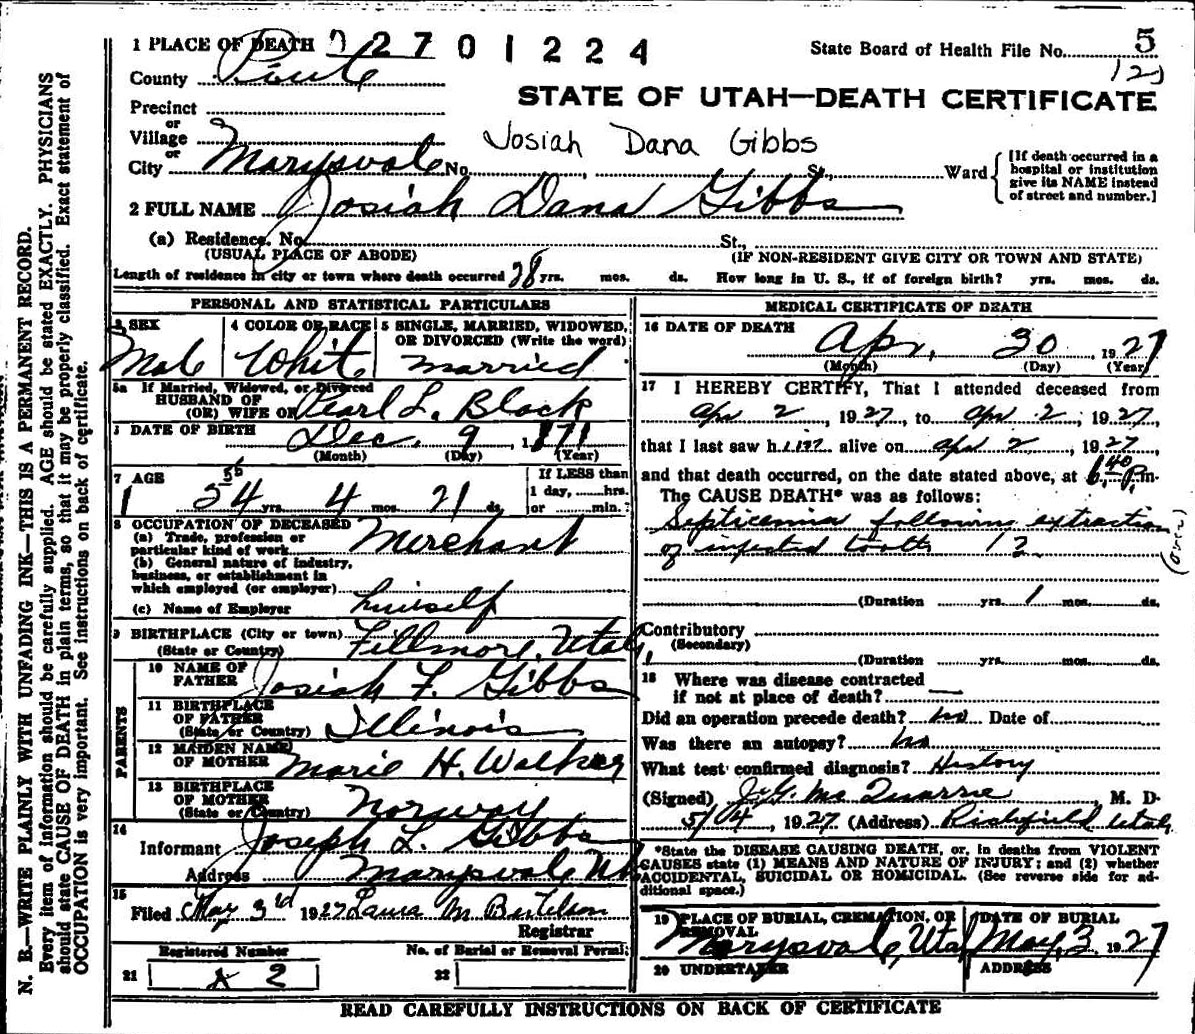 1 PLACE OF DEATH 2 2 7 0 1 2 2 4
State Board of Health File No. 5
County Piute
12
Precinct
STATE OF UTAH—DEATH CERTIFICATE
or
Village
Josiah Dana Gibbs
or
City Marysvale No. , St., Ward
[If death occurred in a
hospital or institution
give its NAME instead
of street and number.]
2 FULL NAME Josiah Dana Gibbs
(a) Residence. No. St.,
(USUAL PLACE OF ABODE) (IF NON-RESIDENT GIVE CITY OR TOWN AND STATE)
Length of residence in city or town where death occurred 28 yrs. mos. ds. How long in U. S., if of foreign birth? yrs. mos. ds.
PERSONAL AND STATISTICAL PARTICULARS
3 SEX
Male
4 COLOR OR RACE
White
5 SINGLE, MARRIED, WIDOWED,
OR DIVORCED (Write the word)
married
5a If Married, Widowed, or Divorced
HUSBAND OF
(OR) WIFE OF Pearl L. Black
DATE OF BIRTH Dec. 9 1871
(Month) (Day) (Year)
7 AGE
54 yrs. 4 mos. 21 ds.
If LESS than
1 day, hrs.
or min.
8 OCCUPATION OF DECEASED
(a) Trade, profession or
particular kind of work Merchant
(b) General nature of industry,
business, or establishment in
which employed (or employer)
(c) Name of Employer himself
9 BIRTHPLACE (City or town)
(State or Country) Fillmore, Utah,
PARENTS
10 NAME OF
FATHER Josiah F. Gibbs
11 BIRTHPLACE
OF FATHER
(State or Country) Illinois
12 MAIDEN NAME
OF MOTHER Marie H. Walker
13 BIRTHPLACE
OF MOTHER
(State or Country) Norway
14
Informant Joseph L. Gibbs
Address Marysvale Utah
15
Filed May 3rd 1927 Laura M Bertelson
Registrar
Registered Number
21 2
No. of Burial or Removal Permit
22
MEDICAL CERTIFICATE OF DEATH
16 DATE OF DEATH
Apr. 30, 1927
(Month) (Day) (Year)
17 I HEREBY CERTIFY, That I attended deceased from
Apr 2, 1927, to Apr 2, 1927,
that I last saw him alive on Apr 2, 1927,
and that death occurred, on the date stated above, at 6:40 P.m.
The CAUSE DEATH* was as follows:
Septicemia following extraction
of infected tooth 12
(Duration yrs. 1 mos. ds.
Contributory
(Secondary)
(Duration yrs. mos. ds.
18 Where was disease contracted
if not at place of death? —
Did an operation precede death? no Date of
Was there an autopsy? no
What test confirmed diagnosis? History
(Signed) J. G. McQuarrie M. D.
5/04, 1927 (Address) Richfield Utah
*State the DISEASE CAUSING DEATH, or, in deaths from VIOLENT
CAUSES state (1) MEANS AND NATURE OF INJURY; and (2) whether
ACCIDENTAL, SUICIDAL OR HOMICIDAL. (See reverse side for ad-
ditional space.)
19 PLACE OF BURIAL, CREMATION, OR
REMOVAL
Marysvale, Utah
DATE OF BURIAL
May, 3 1927
20 UNDERTAKER
ADDRESS
READ CAREFULLY INSTRUCTIONS ON BACK OF CERTIFICATE
N. B.—WRITE PLAINLY WITH UNFADING INK—THIS IS A PERMANENT RECORD.
Every item of information should be carefully supplied. AGE should be stated EXACTLY. PHYSICIANS
should state CAUSE OF DEATH in plain terms, so that it may be properly classified. Exact statement of
OCCUPATION is very important. See instructions on back of certificate.